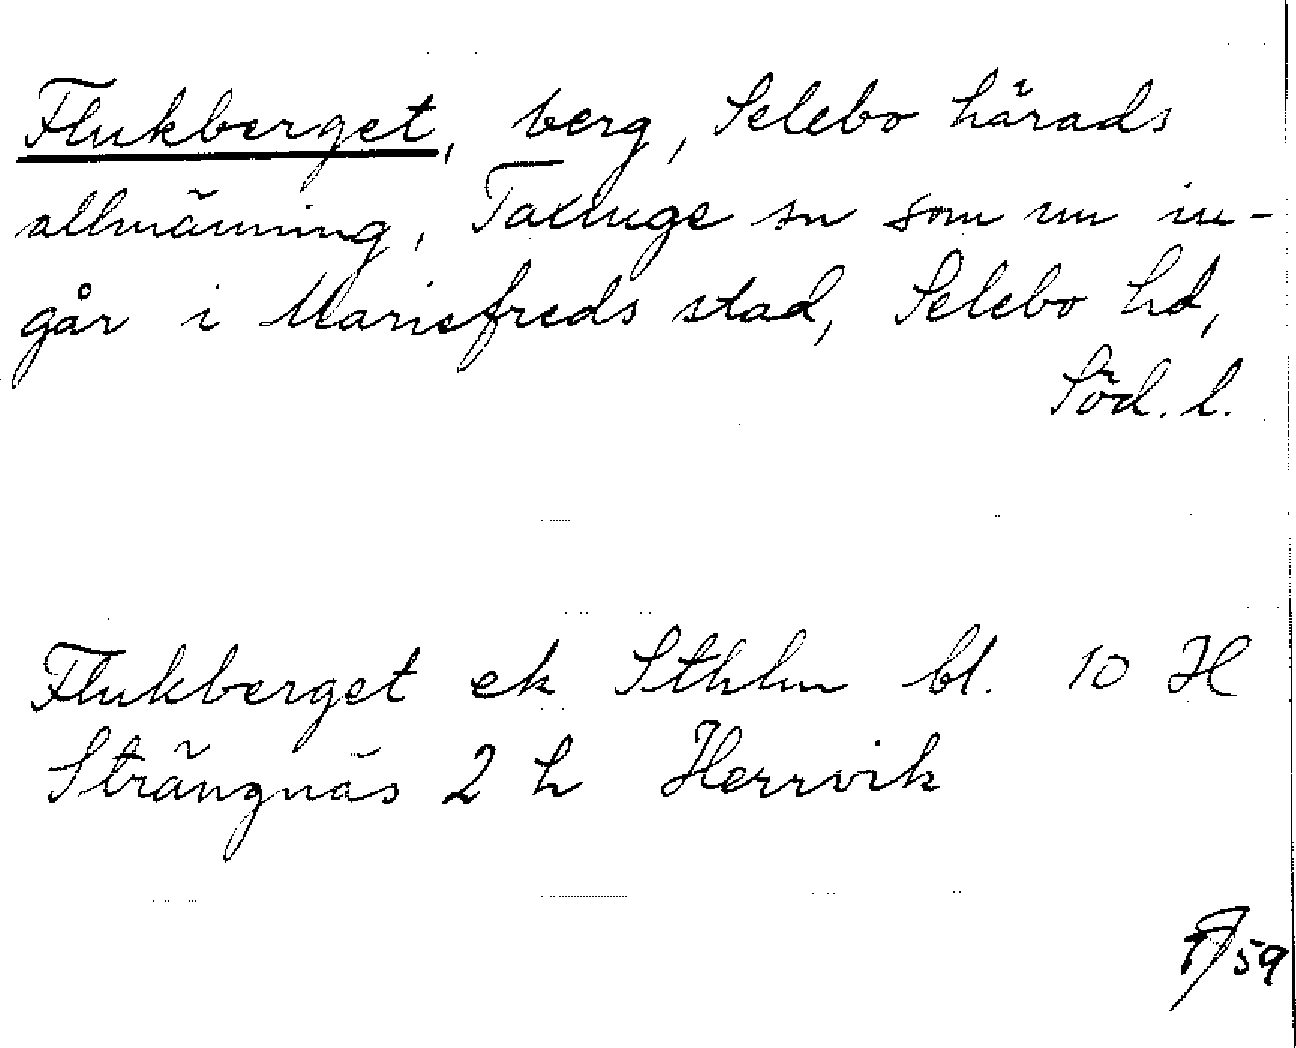 Flukberget, berg, Selebo härads
allmänning, Taxinge sn som nu in-
går i Mariefreds stad, Selebo hd,
Söd. l.
Flukberget ek Sthlm bl. 10 H
Strängnäs 2 h Herrvik
59